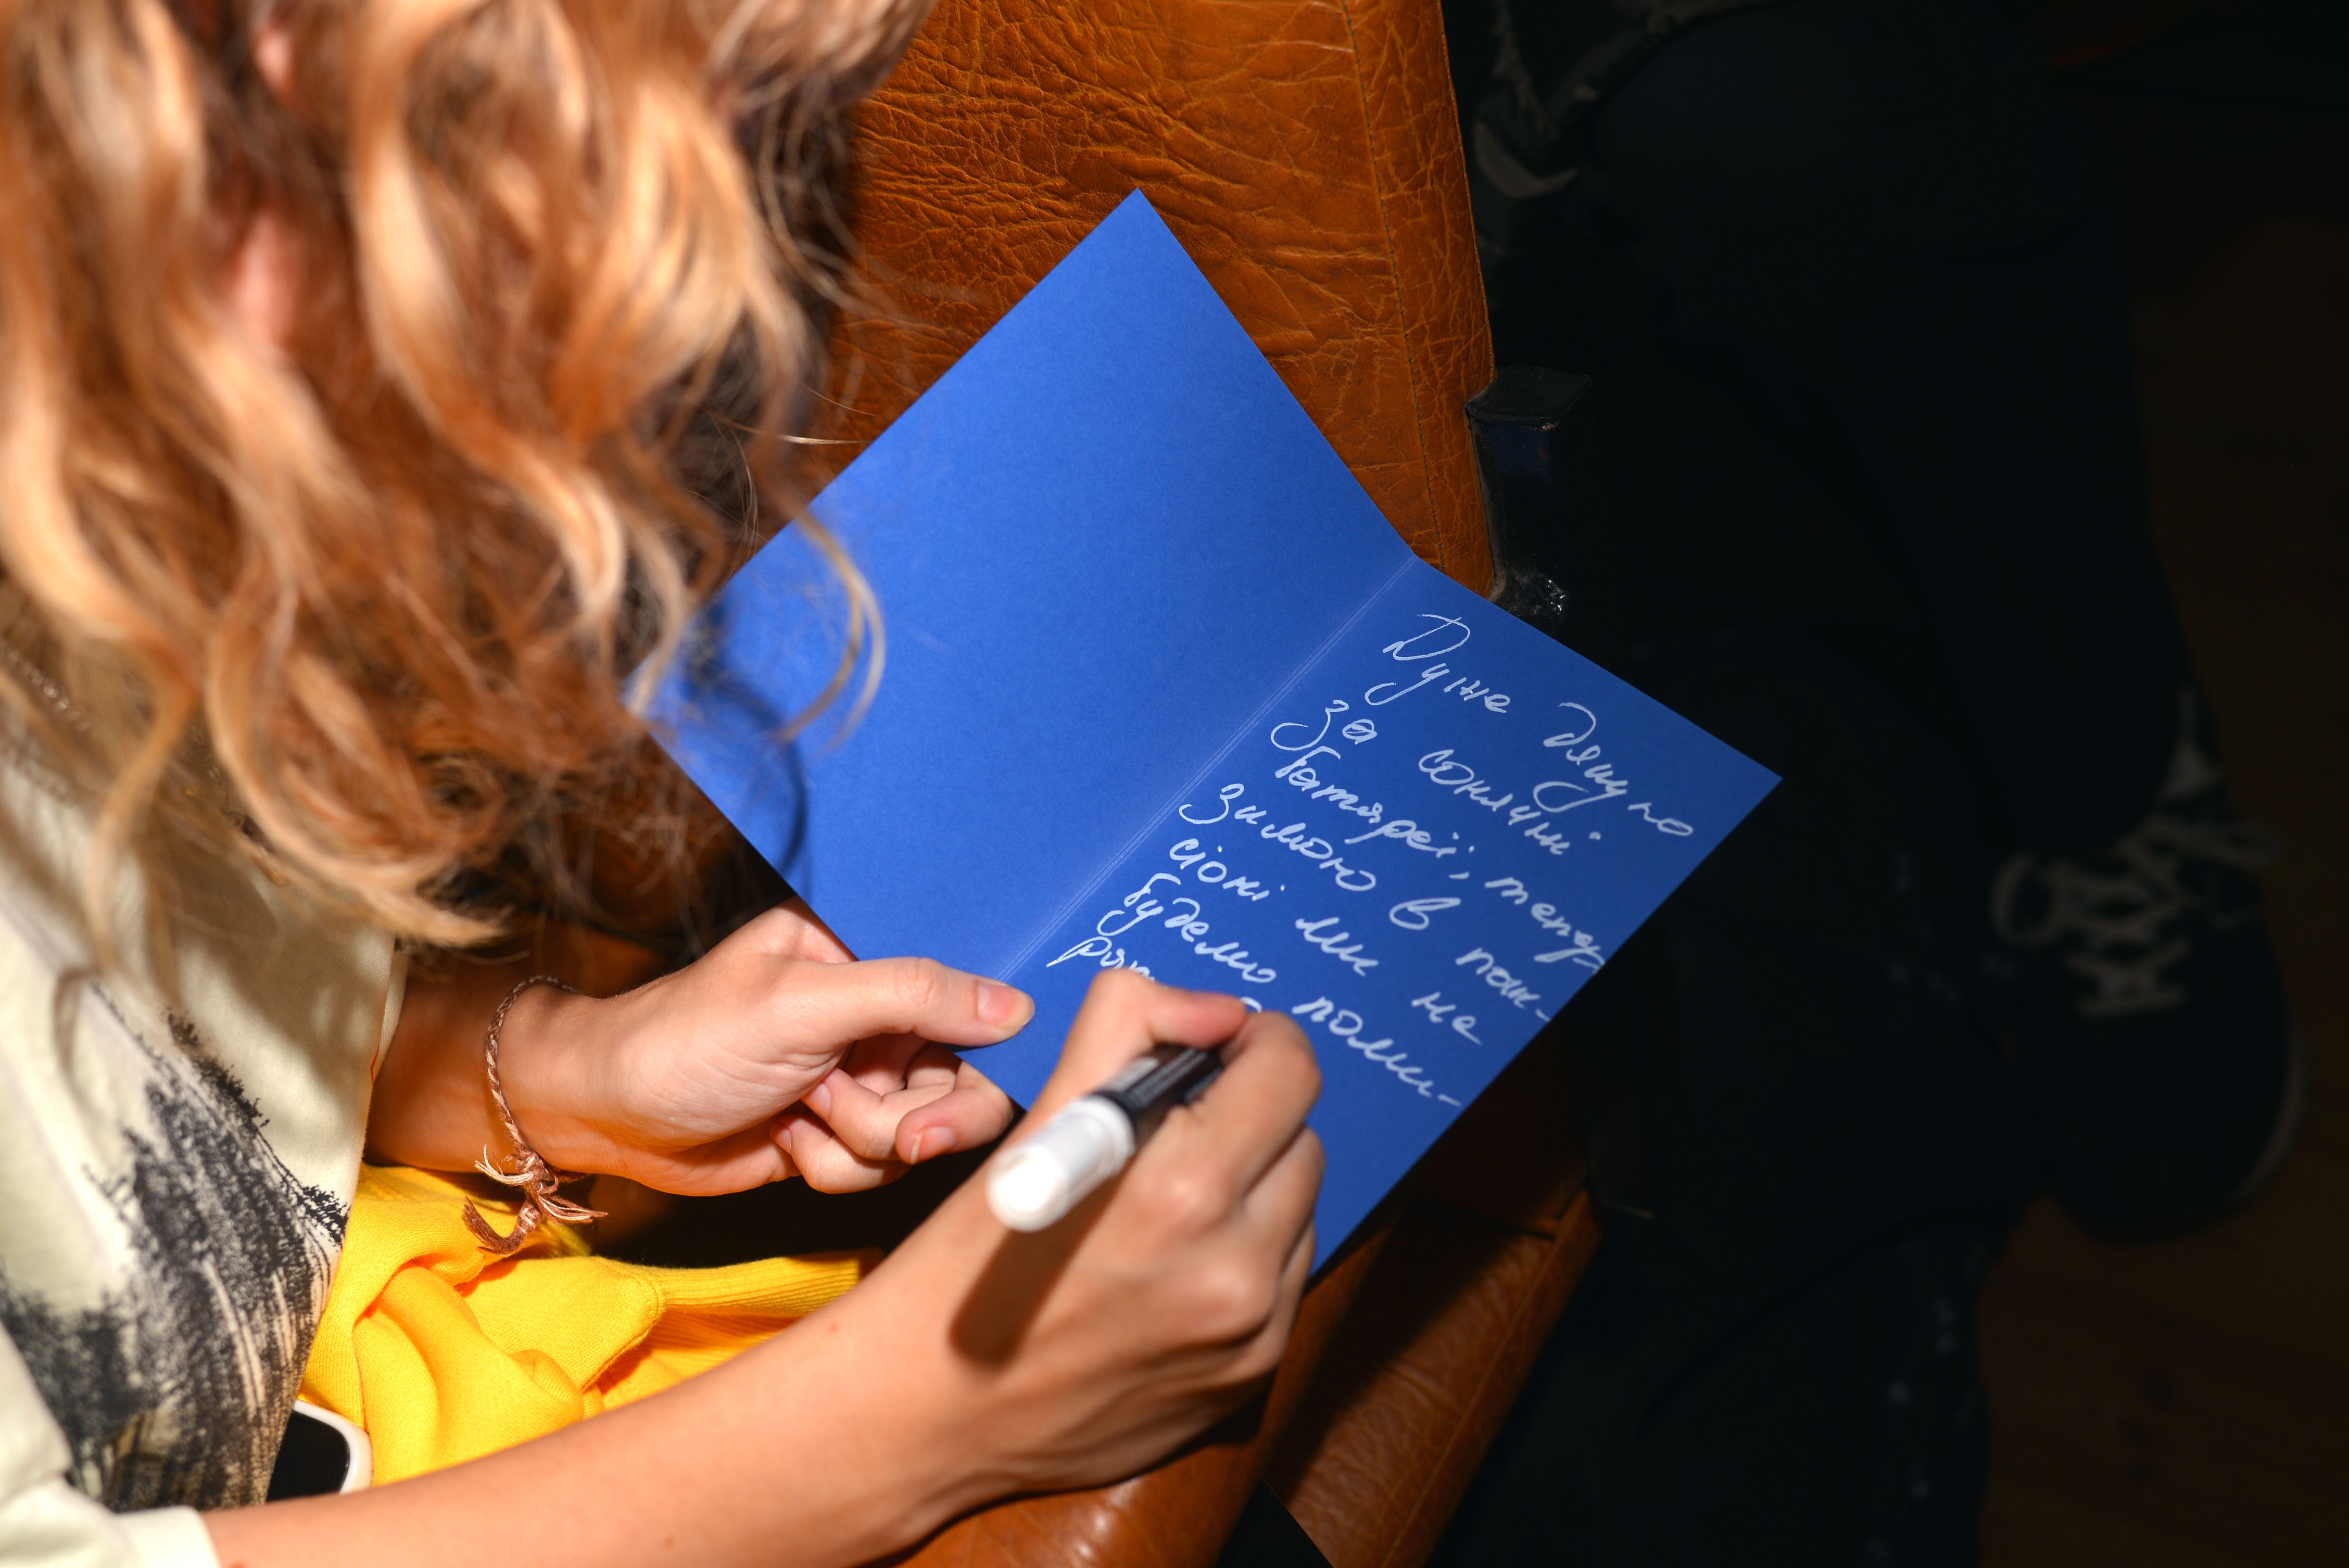 Дуже дякую
за сонячні
батареї, тепер
зимою в пан-
сіоні ми не
будемо поми-